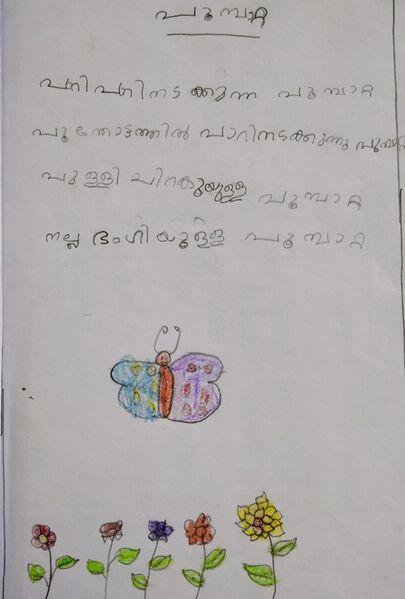 പൂമ്പാറ്റ
പണിപണിനടക്കുന്ന പൂമ്പാറ്റ
പൂന്തോട്ടത്തിൽ പാറിനടക്കുന്നു പൂമ്പാറ്റ
പുള്ളി ചിറകുയുള്ള പൂമ്പാറ്റ
നല്ല ഭംഗിയുള്ള പൂമ്പാറ്റ